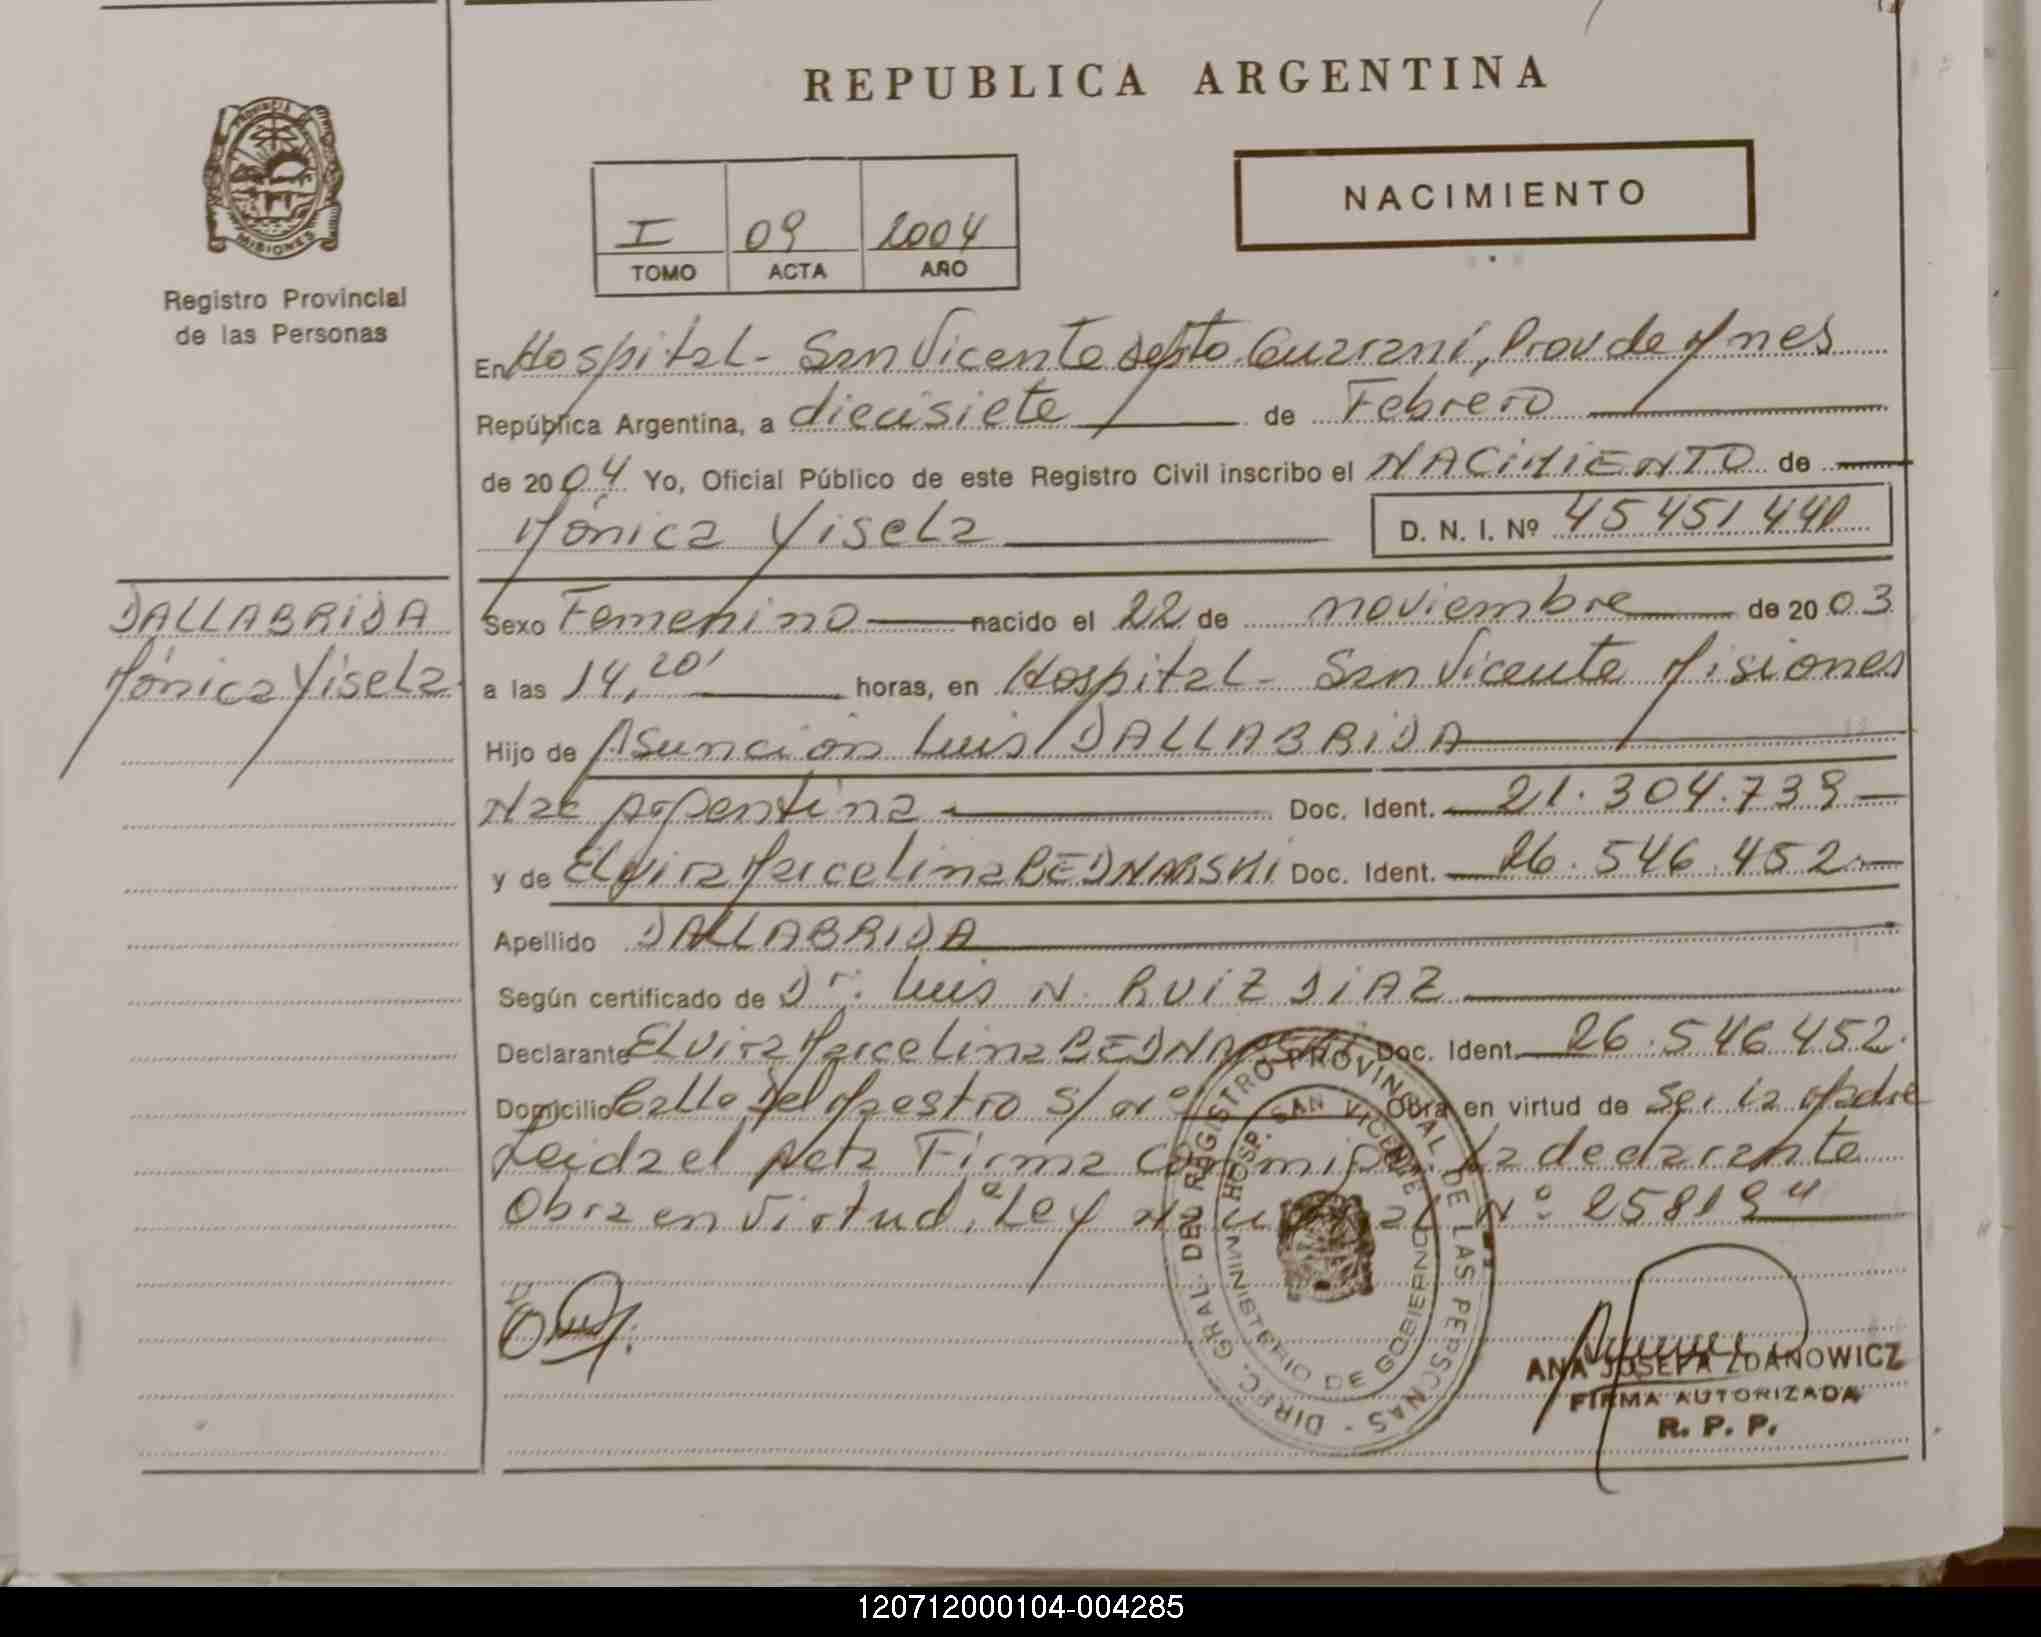 REPUBLICA ARGENTINA
PROVINCIA DE MISIONES
Registro Provincial
de las Personas
I 09 2004
TOMO ACTA AÑO
NACIMIENTO
En Hospital - San Vicente depto Guaraní, Prov de Mnes
República Argentina, a diecisiete de Febrero
de 2004 Yo, Oficial Público de este Registro Civil inscribo el NACIMIENTO de
Mónica Yisela D. N. I. Nº 45451440
DALLABRIDA
Mónica Yisela
Sexo Femenino nacido el 22 de noviembre de 2003
a las 14,20' horas, en Hospital - San Vicente Misiones
Hijo de Asunción Luis DALLABRIDA
Nac Argentina Doc. Ident. 21.304.739
y de Elvira Marcelina BEDNARSKI Doc. Ident. 26.546.452
Apellido DALLABRIDA
Según certificado de Dr. Luis N. RUIZ DIAZ
Declarante Elvira Marcelina BEDNARSKI Doc. Ident. 26.546.452.
Domicilio Calle Del Maestro s/nº Obra en virtud de ser la Madre
Leida el Acta Firma conmigo la declarante
Obra en virtud: "Ley Nacional Nº 25819"
DIREC. GRAL. DEL REGISTRO PROVINCIAL DE LAS PERSONAS
HOSP. SAN VICENTE
MINISTERIO DE GOBIERNO
ANA JOSEFA ZDANOWICZ
FIRMA AUTORIZADA
R. P. P.
120712000104-004285